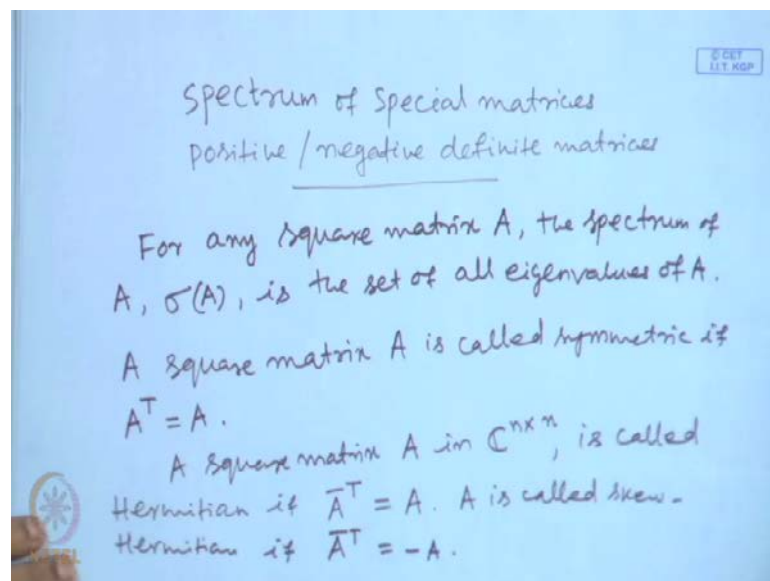 © CET
I.I.T. KGP
Spectrum of Special matrices
positive / negative definite matrices
For any square matrix A, the spectrum of
A, σ(A), is the set of all eigenvalues of A.
A square matrix A is called symmetric if
Aᵀ = A.
A square matrix A in ℂⁿˣⁿ, is called
Hermitian if A̅ᵀ = A. A is called skew-
Hermitian if A̅ᵀ = -A.